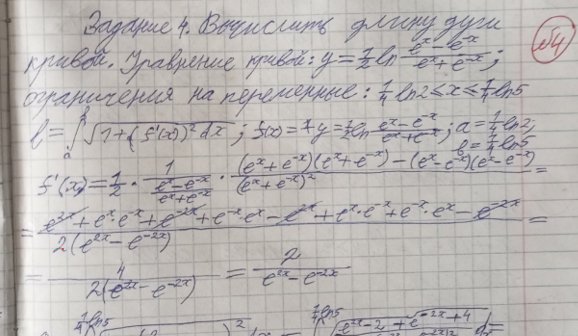 Задание 4. Вычислить длину дуги
№4
кривой. Уравнение кривой: y = 1/2 ln (e^x - e^-x)/(e^x + e^-x);
ограничения на переменные: 1/4 ln2 ≤ x ≤ 1/4 ln5
l = ∫_a^b √(1 + (f'(x))² dx; f(x) = 1 y = 1/2 ln (e^x - e^-x)/(e^x + e^-x); a = 1/4 ln2;
b = 1/4 ln5
f'(x) = 1/2 · 1/((e^x - e^-x)/(e^x + e^-x)) · ((e^x + e^-x)(e^x + e^-x) - (e^x - e^-x)(e^x - e^-x))/(e^x + e^-x)² =
= (e^2x + e^x e^-x + e^-2x + e^-x · e^x - e^2x + e^x · e^-x + e^-x · e^x - e^-2x)/(2(e^2x - e^-2x)) =
= 4/(2(e^2x - e^-2x)) = 2/(e^2x - e^-2x)
1/4 ln5 1/4 ln5 e^2x - 2 + e^-2x + 4